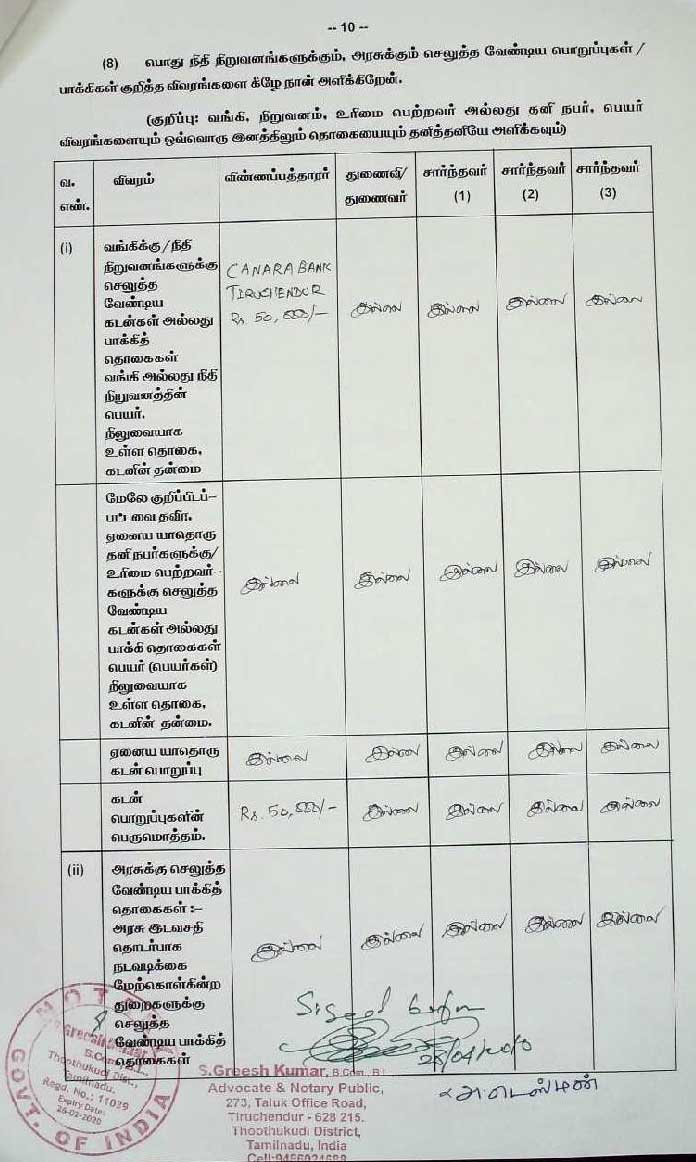 -- 10 --
(8) பொது நிதி நிறுவனங்களுக்கும், அரசுக்கும் செலுத்த வேண்டிய பொறுப்புகள் /
பாக்கிகள் குறித்த விவரங்களை கீழே நான் அளிக்கிறேன்.
(குறிப்பு: வங்கி, நிறுவனம், உரிமை பெற்றவர் அல்லது தனி நபர், பெயர்
விவரங்களையும் ஒவ்வொரு இனத்திலும் தொகையையும் தனித்தனியே அளிக்கவும்)
வ. எண். விவரம் விண்ணப்பத்தாரர் துணைவி/ துணைவர் சார்ந்தவர் (1) சார்ந்தவர் (2) சார்ந்தவர் (3)
(i) வங்கிக்கு / நிதி
நிறுவனங்களுக்கு
செலுத்த
வேண்டிய
கடன்கள் அல்லது
பாக்கித்
தொகைகள்
வங்கி அல்லது நிதி
நிறுவனத்தின்
பெயர்.
நிலுவையாக
உள்ள தொகை,
கடனின் தன்மை
CANARA BANK
TIRUCHENDUR
Rs. 50,000/-
இல்லை இல்லை இல்லை இல்லை
மேலே குறிப்பிடப்-
பட்டவை தவிர,
ஏனைய யாதொரு
தனி நபர்களுக்கு/
உரிமை பெற்றவர்
களுக்கு செலுத்த
வேண்டிய
கடன்கள் அல்லது
பாக்கி தொகைகள்
பெயர் (பெயர்கள்)
நிலுவையாக
உள்ள தொகை,
கடனின் தன்மை.
இல்லை இல்லை இல்லை இல்லை இல்லை
ஏனைய யாதொரு
கடன் பொறுப்பு
இல்லை இல்லை இல்லை இல்லை இல்லை
கடன்
பொறுப்புகளின்
பெருமொத்தம்.
Rs. 50,000/- இல்லை இல்லை இல்லை இல்லை
(ii) அரசுக்கு செலுத்த
வேண்டிய பாக்கித்
தொகைகள் :-
அரசு இடவசதி
தொடர்பாக
நடவடிக்கை
மேற்கொள்கின்ற
துறைகளுக்கு
செலுத்த
வேண்டிய பாக்கித்
தொகைகள்
இல்லை இல்லை இல்லை இல்லை இல்லை
NOTARY
Thoothukudi Dist.,
Tamilnadu,
Regd. No.: 11039
Expiry Date:
GOVT. OF INDIA
S.Greesh Kumar, B.Com., B.L.
Advocate & Notary Public,
273, Taluk Office Road,
Tiruchendur - 628 215.
Thoothukudi District,
Tamilnadu, India